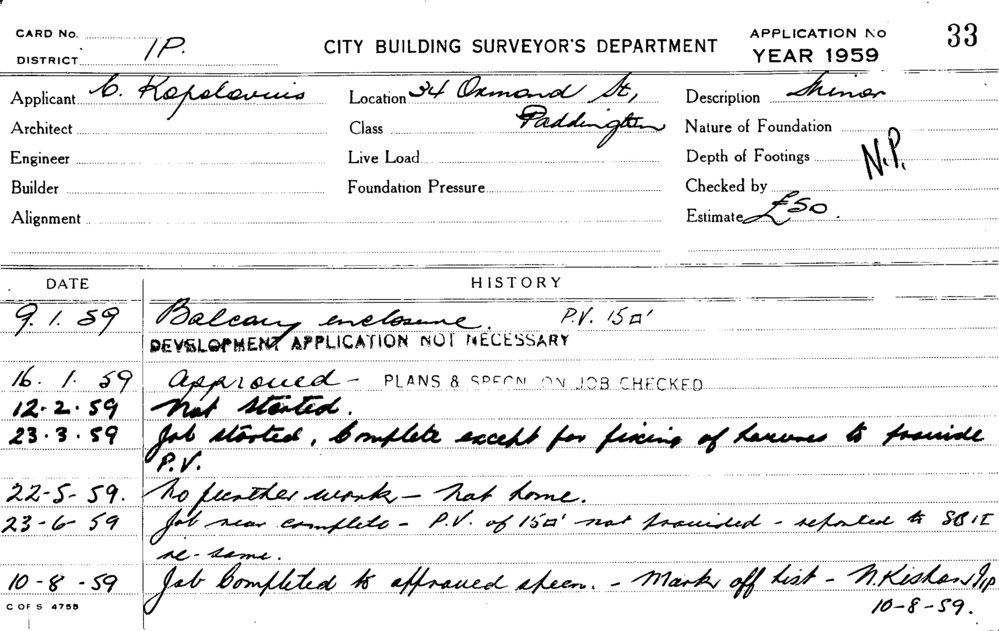 CARD No.
DISTRICT 1P.
CITY BUILDING SURVEYOR'S DEPARTMENT
APPLICATION No 33
YEAR 1959
Applicant C. Location 34 Ormond St, Description Minor
Architect Class Paddington Nature of Foundation
Engineer Live Load Depth of Footings N.P.
Builder Foundation Pressure Checked by
Alignment Estimate £50.
DATE HISTORY
9.1.59 Balcony enclosure. P.V. 15□'
DEVELOPMENT APPLICATION NOT NECESSARY
16.1.59 Approved - PLANS & SPECN ON JOB CHECKED
12.2.59 Not started.
23.3.59 Job started, Complete except for fixing of louvres to provide
P.V.
22-5-59. No further work - not home.
23-6-59 Job near complete - P.V. of 15□' not provided - reported to SBI
re-same.
10-8-59 Job Completed to approved specn. - Mark off list - N.
C OF S 475B 10-8-59.